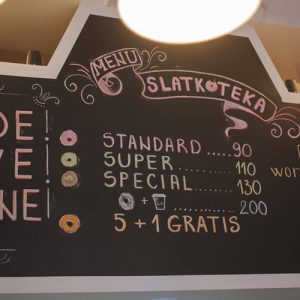 MENU
SLATKOTEKA
STANDARD ..... 90
SUPER ........ 110
SPECIAL ...... 130
+ ........ 200
5 + 1 GRATIS